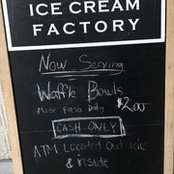 ICE CREAM
FACTORY
Now Serving
Waffle Bowls
Made Fresh Daily $2.00
CASH ONLY
ATM Located Outside
& Inside